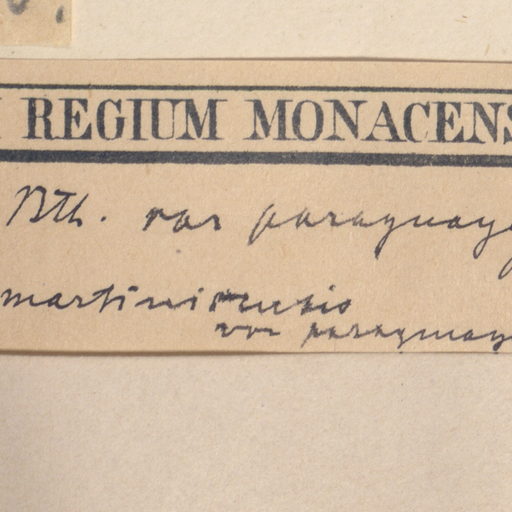 REGIUM MONACENS
Bth. var paraguay
martinicensis
var paraguay